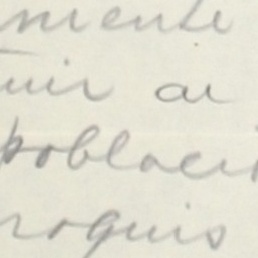 mente
uir al
poblaci
roquis